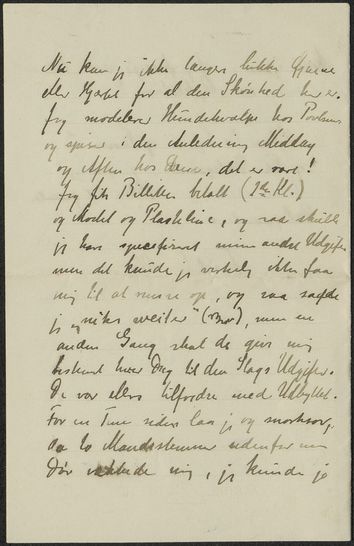 Nu kan jeg ikke længer lukke Øjnene
eller Hjertet for al den Skønhed her er.
Jeg modelerer Hundehvalpe hos Poulsens
og spiser i den Anledning Middag
og Aften hos dem, det er rart!
Jeg fik Billetten betalt (1ste Kl.)
og Model og Plastiline, og saa skulde
jeg have specificeret mine andre Udgifter
men det kunde jeg virkelig ikke faa
mig til at remse op, og saa sagde
jeg "niks weiter" (Bror), men en
anden Gang skal de give mig
bestemt hver Dag til den Slags Udgifter.
De var ellers tilfredse med Udbyttet.
For en Time siden laa jeg og snorksov,
da to Mandsstemmer udenfor min
Dør vækkede mig, jeg kunde jo